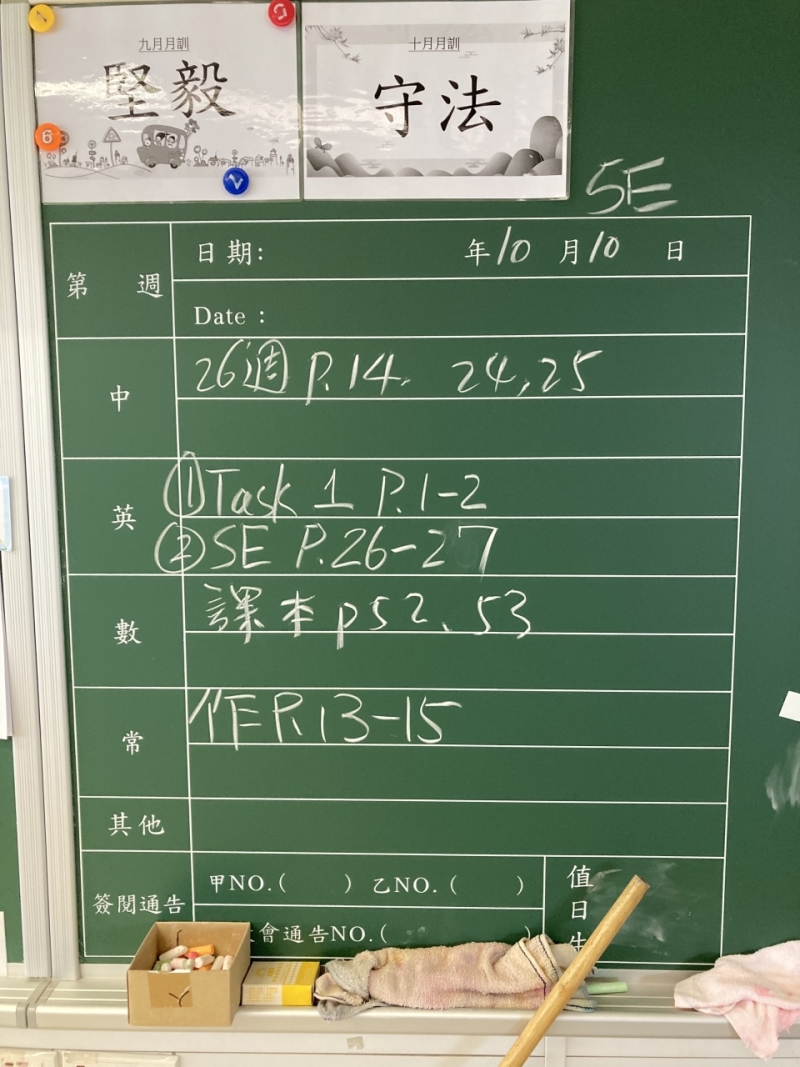 九月月訓
堅毅
十月月訓
守法
6
5E
第 週
日期: 年10月10日
Date :
中
26週 P.14, 24,25
英
①Task 1 P.1-2
②SE P.26-27
數
課本p52、53
常
作P.13-15
其他
簽閱通告
甲NO.( ) 乙NO.( )
會通告NO.( )
值日生